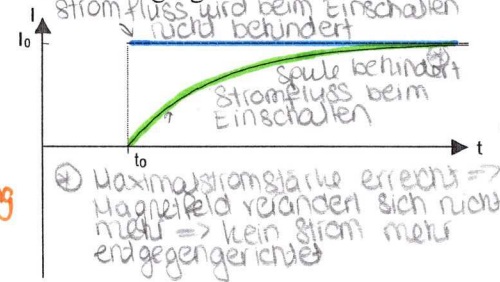 Stromfluss wird beim Einschalten
nicht behindert
I
I0
Spule behindert
Stromfluss beim
Einschalten
t0
t
* Maximalstromstärke erreicht =>
Magnetfeld verändert sich nicht
mehr => kein Strom mehr
endgegengerichtet